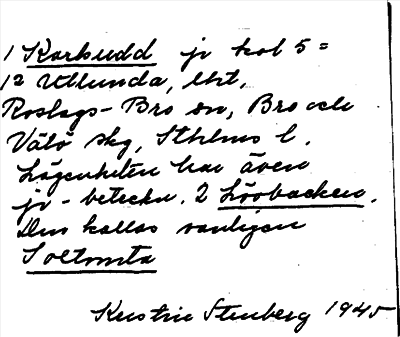 1 Karludd jr hol 5=
12 Utlunda, lht,
Roslags-Bro sn, Bro och
Vätö skg, Sthlms l.
Lägenheten har även
jr-beteckn. 2 Lövbacken.
Den kallas vanligen
Soltomta
Kerstin Stenberg 1945